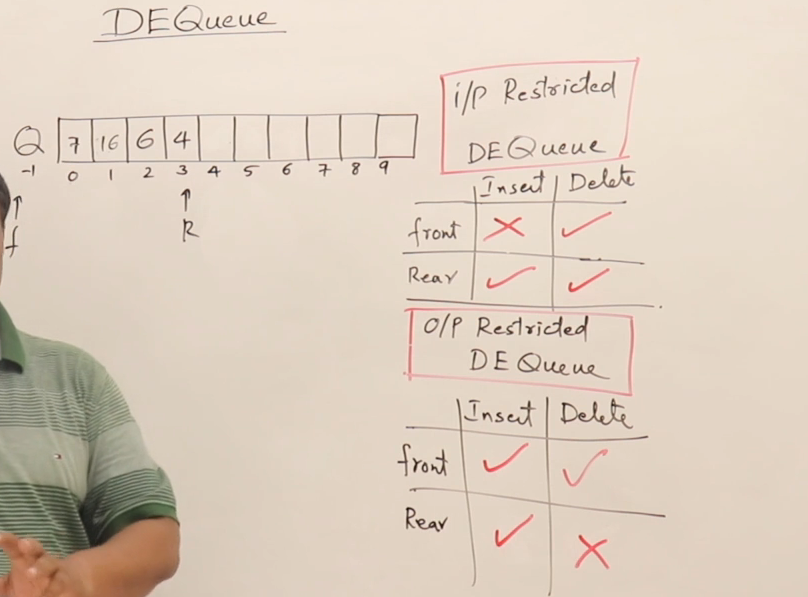 DEQueue
Q 7 16 6 4
-1 0 1 2 3 4 5 6 7 8 9
f R
i/p Restricted
DEQueue
Insert Delete
front
Rear
O/P Restricted
DE Queue
Insert Delete
front
Rear